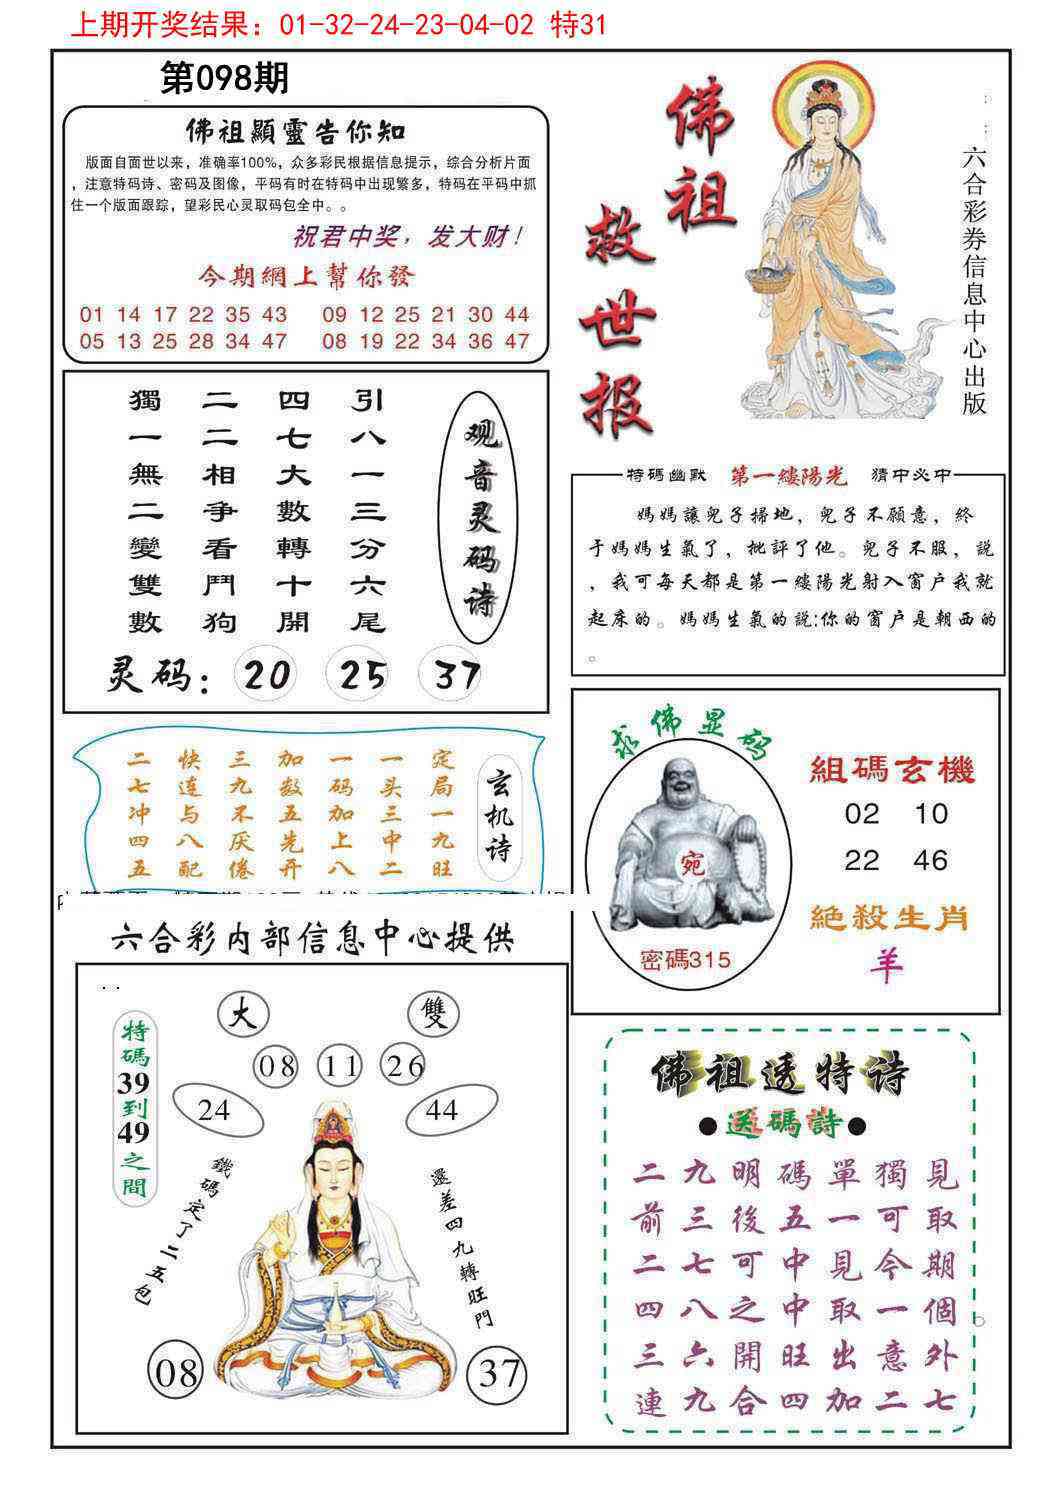 上期开奖结果：01-32-24-23-04-02 特31
第098期
佛祖顯靈告你知
版面自面世以来，准确率100%，众多彩民根据信息提示，综合分析片面
，注意特码诗、密码及图像，平码有时在特码中出现繁多，特码在平码中抓
住一个版面跟踪，望彩民心灵取码包全中。。
祝君中奖，发大财！
今期網上幫你發
01 14 17 22 35 43 09 12 25 21 30 44
05 13 25 28 34 47 08 19 22 34 36 47
佛祖
救世报
六合彩券信息中心出版
观音灵码诗
引八一三分六尾
四七大數轉十開
二二相争看鬥狗
獨一無二變雙數
灵码：20 25 37
特碼幽默 第一縷陽光 猜中必中
媽媽讓兒子掃地，兒子不願意，終
于媽媽生氣了，批評了他。兒子不服，説
，我可每天都是第一縷陽光射入窗户我就
起床的。媽媽生氣的説:你的窗户是朝西的
。
玄机诗
定局一九旺
一头三中二
一码加上八
加数五先开
三九不厌倦
快连与八配
二七冲四五
求佛显码
宛
密碼315
組碼玄機
02 10
22 46
絕殺生肖
羊
六合彩内部信息中心提供
大 雙
08 11 26
24 44
特碼39到49之間
鐵碼定了二五包
還差四九轉旺門
08 37
佛祖透特诗
●送碼詩●
二九明碼單獨見
前三後五一可取
二七可中見今期
四八之中取一個
三六開旺出意外
連九合四加二七